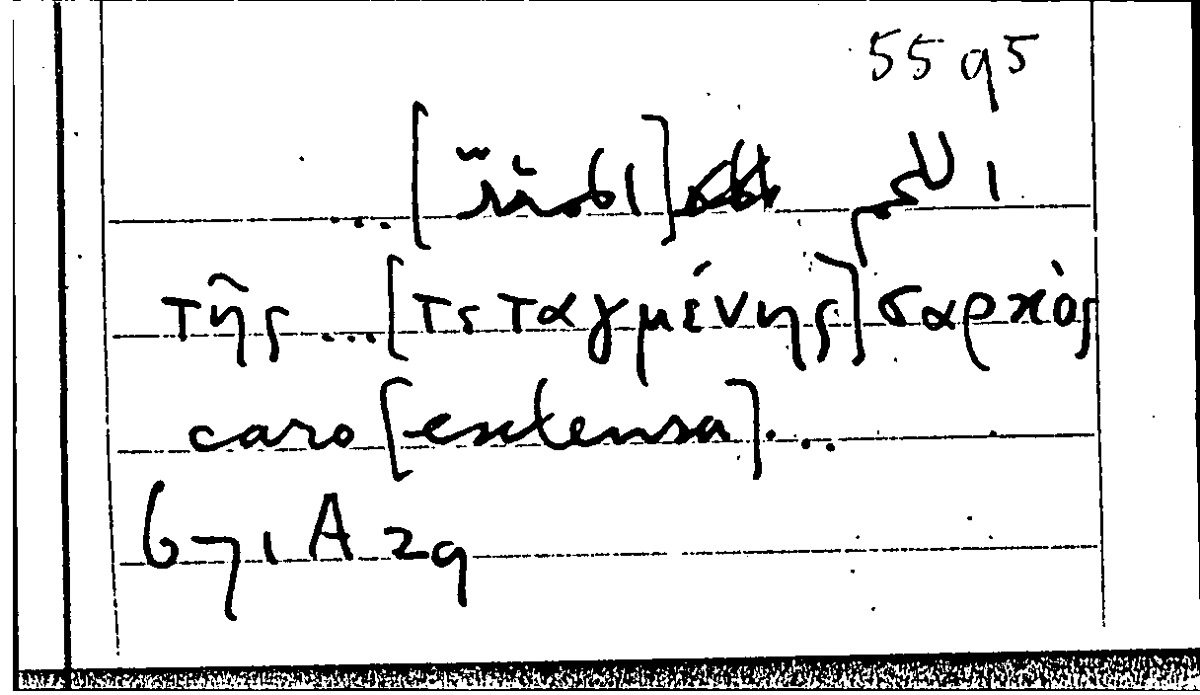 5595
اللحم [ ] ...
τῆς ... [τεταγμένης] σαρκὸς
caro [extensa] ...
671 A 29